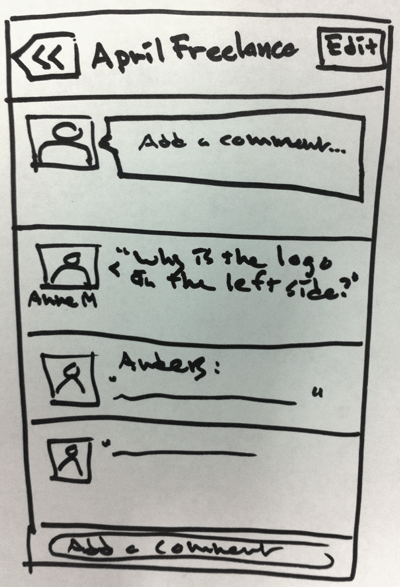 <<
April Freelance
Edit
Add a comment...
"why is the logo
on the left side?"
Anne M
Anders:
" "
"
Add a comment